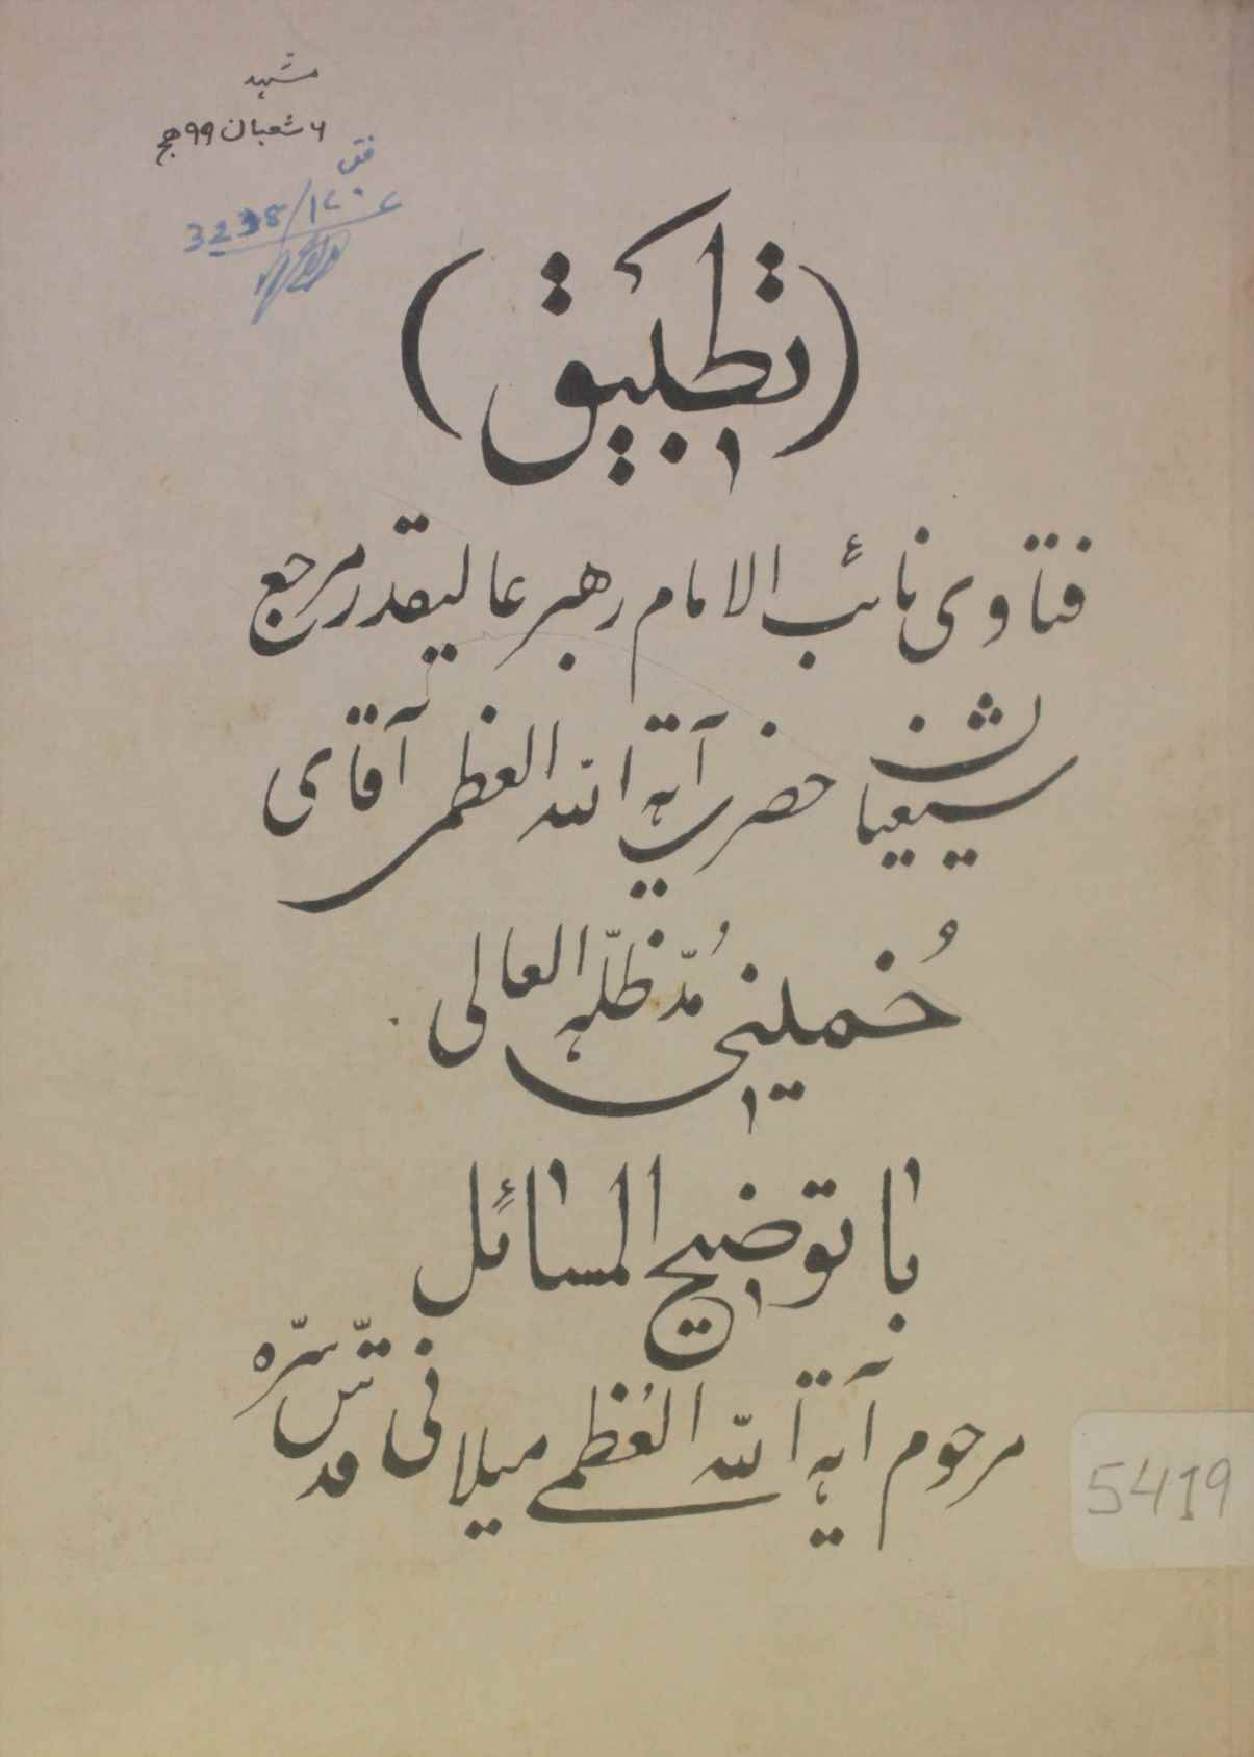 مشهد
۶ شعبان ۹۹ هج
3235/140
(تطبیق)
فتاوی نائب الامام رهبر عالیقدر مرجع
شیعیان حضرت آیة الله العظمی آقای
خُمینی مُدّ ظلّه العالی
با توضیح المسائل
مرحوم آیة الله العُظمی میلانی قدّس سرّه
5419